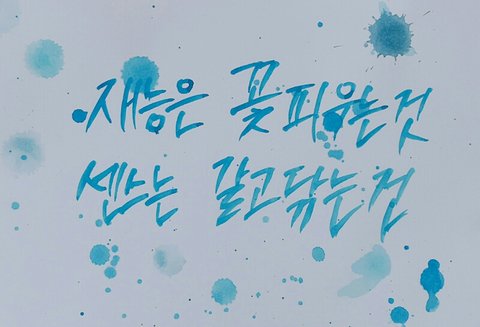 재능은 꽃 피우는 것
센스는 갈고 닦는 것